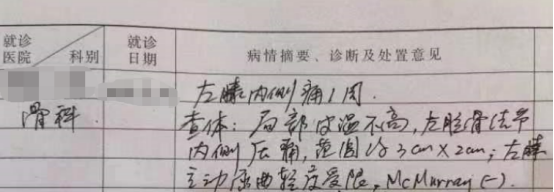 就诊
医院
科别
就诊
日期
病情摘要、诊断及处置意见
骨科
左膝内侧痛1周.
查体:局部皮温不高,左胫骨结节
内侧压痛,范围约3cm×2cm;左膝
主动屈曲轻度受限,McMurray(-)